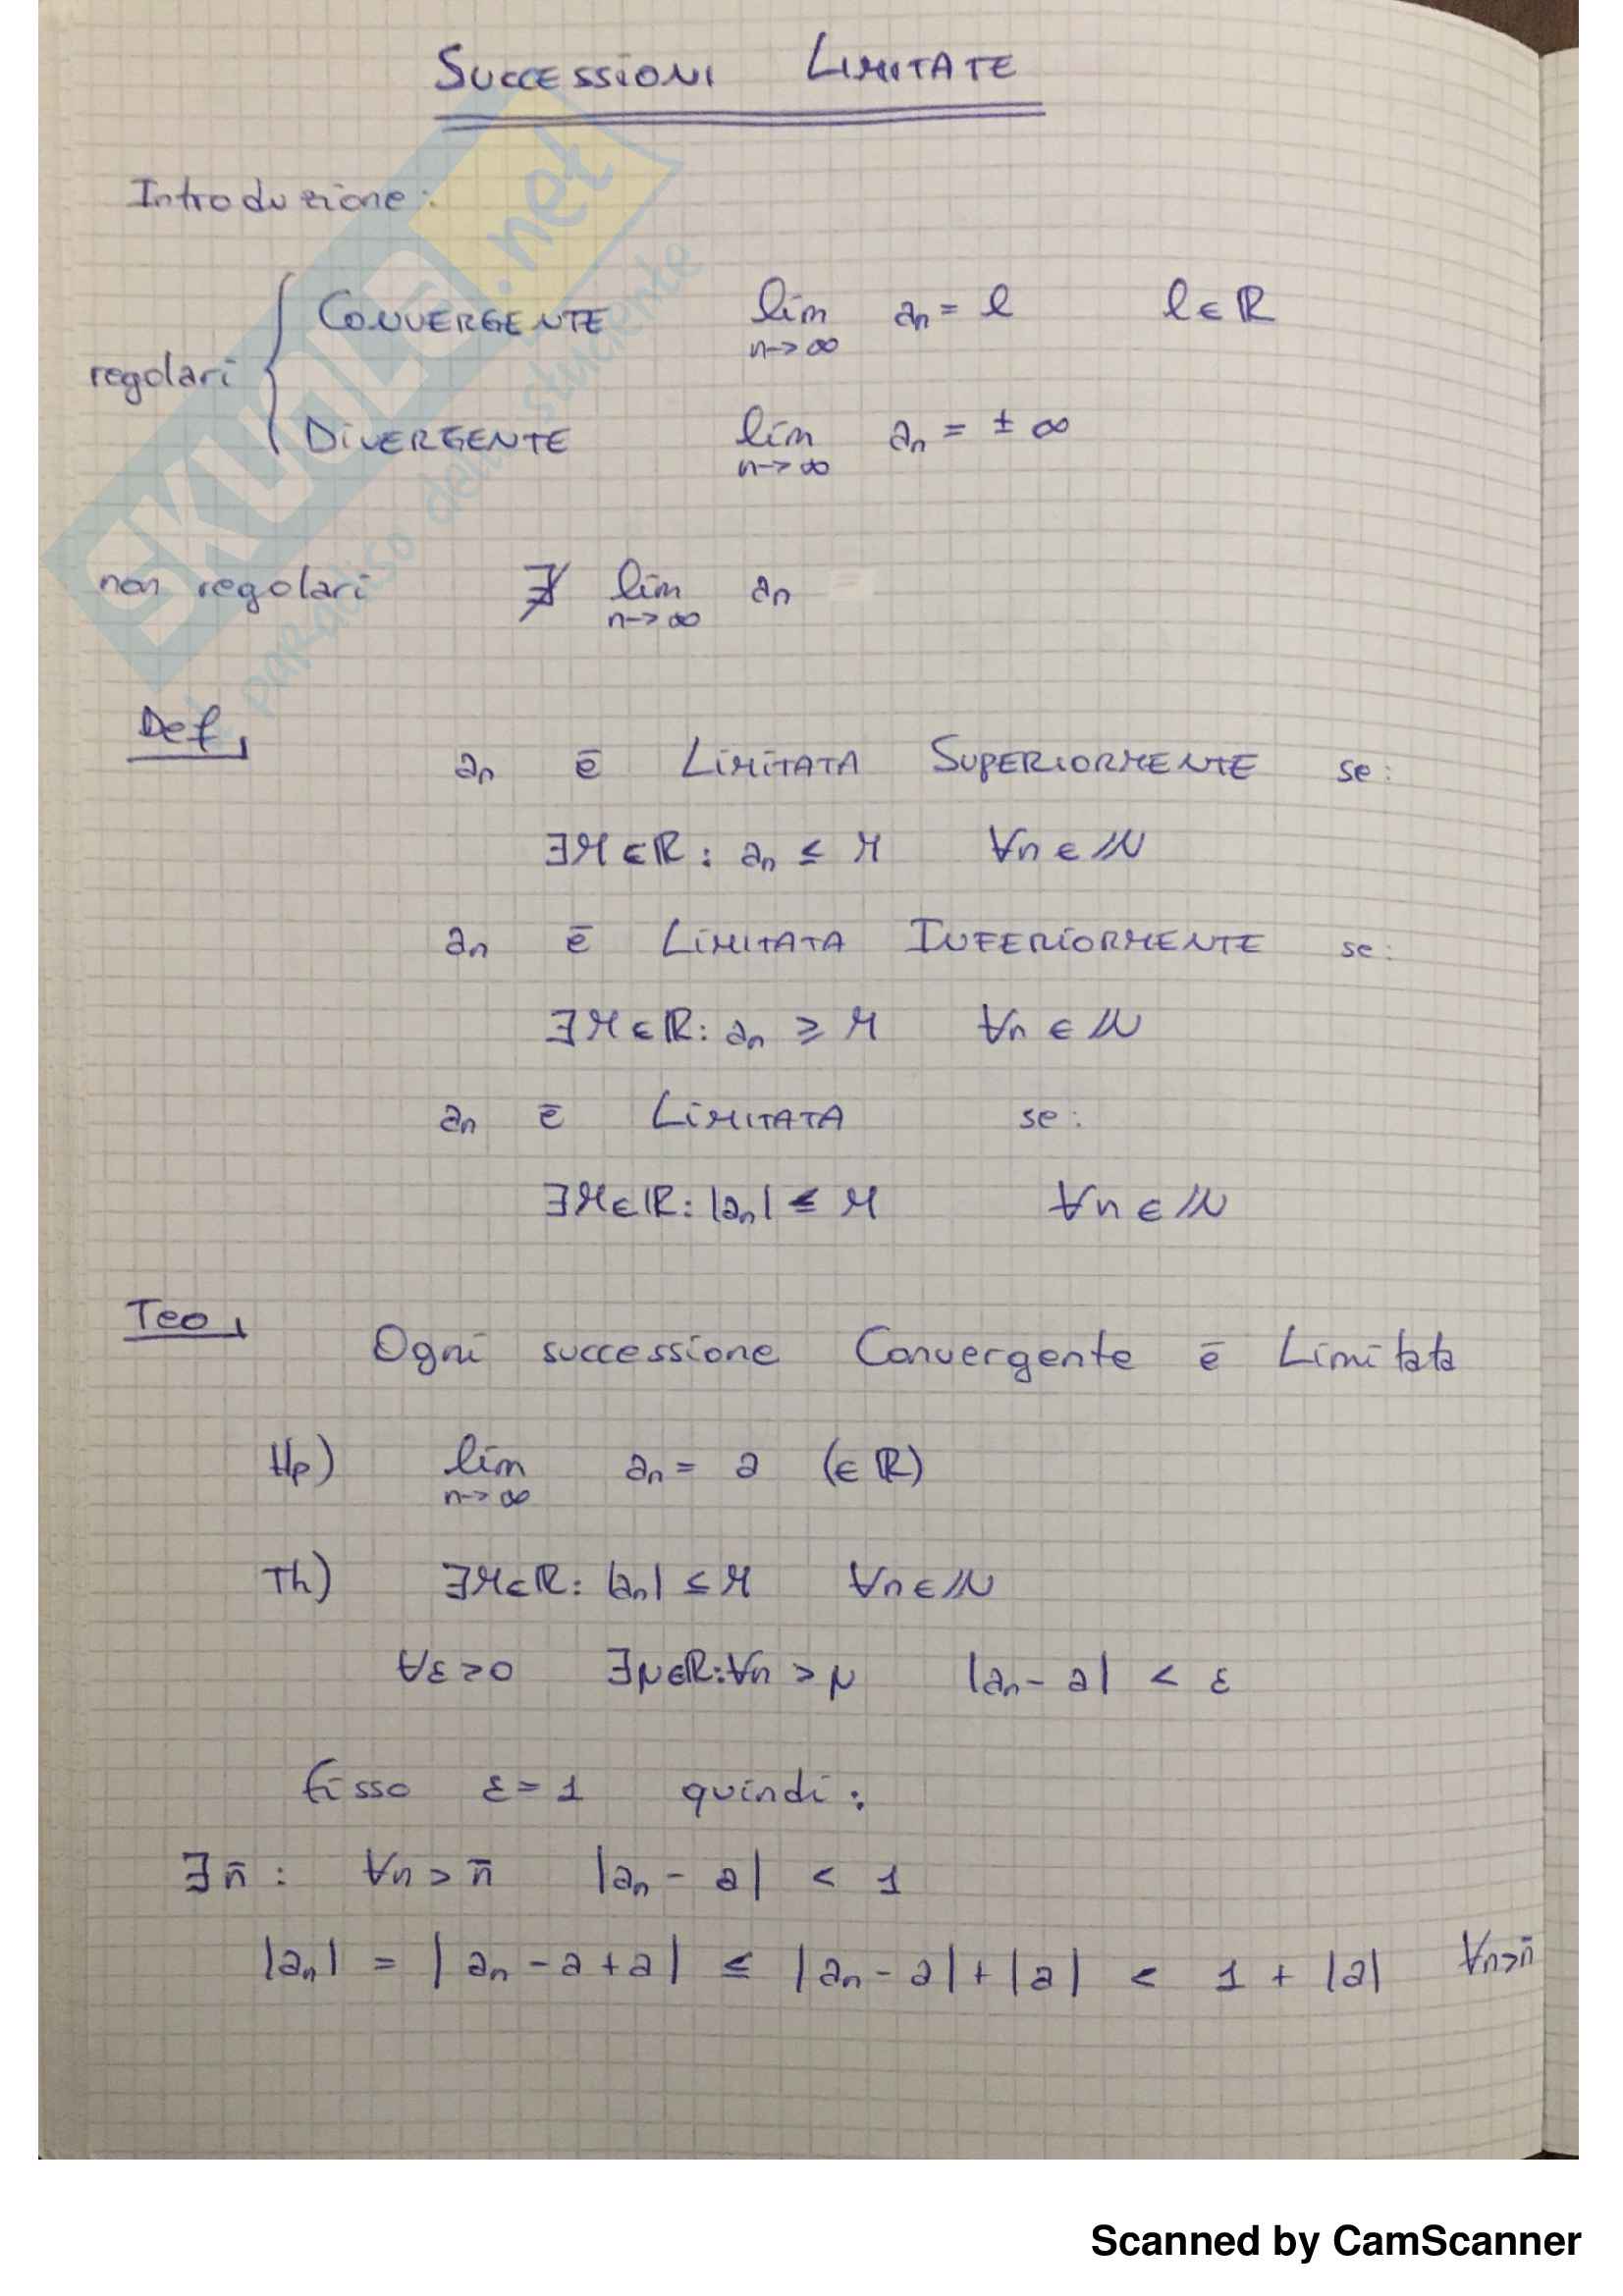 SUCCESSIONI LIMITATE
Introduzione:
regolari { CONVERGENTE lim n->∞ an = l l∈ℝ
DIVERGENTE lim n->∞ an = ± ∞
non regolari ∄ lim n->∞ an
Def,
an ē LIMITATA SUPERIORMENTE se:
∃M∈ℝ: an ≤ M ∀n∈ℕ
an ē LIMITATA INFERIORMENTE se:
∃M∈ℝ: an ≥ M ∀n∈ℕ
an ē LIMITATA se:
∃M∈ℝ: |an| ≤ M ∀n∈ℕ
Teo,
Ogni successione Convergente ē Limitata
Hp) lim n->∞ an = a (∈ℝ)
Th) ∃M∈ℝ: |an| ≤ M ∀n∈ℕ
∀ε>0 ∃μ∈ℝ: ∀n > μ |an - a| < ε
fisso ε=1 quindi:
∃n̄: ∀n > n̄ |an - a| < 1
|an| = |an - a + a| ≤ |an - a| + |a| < 1 + |a| ∀n>n̄
SKUOLA.net
il paradiso dello studente
Scanned by CamScanner